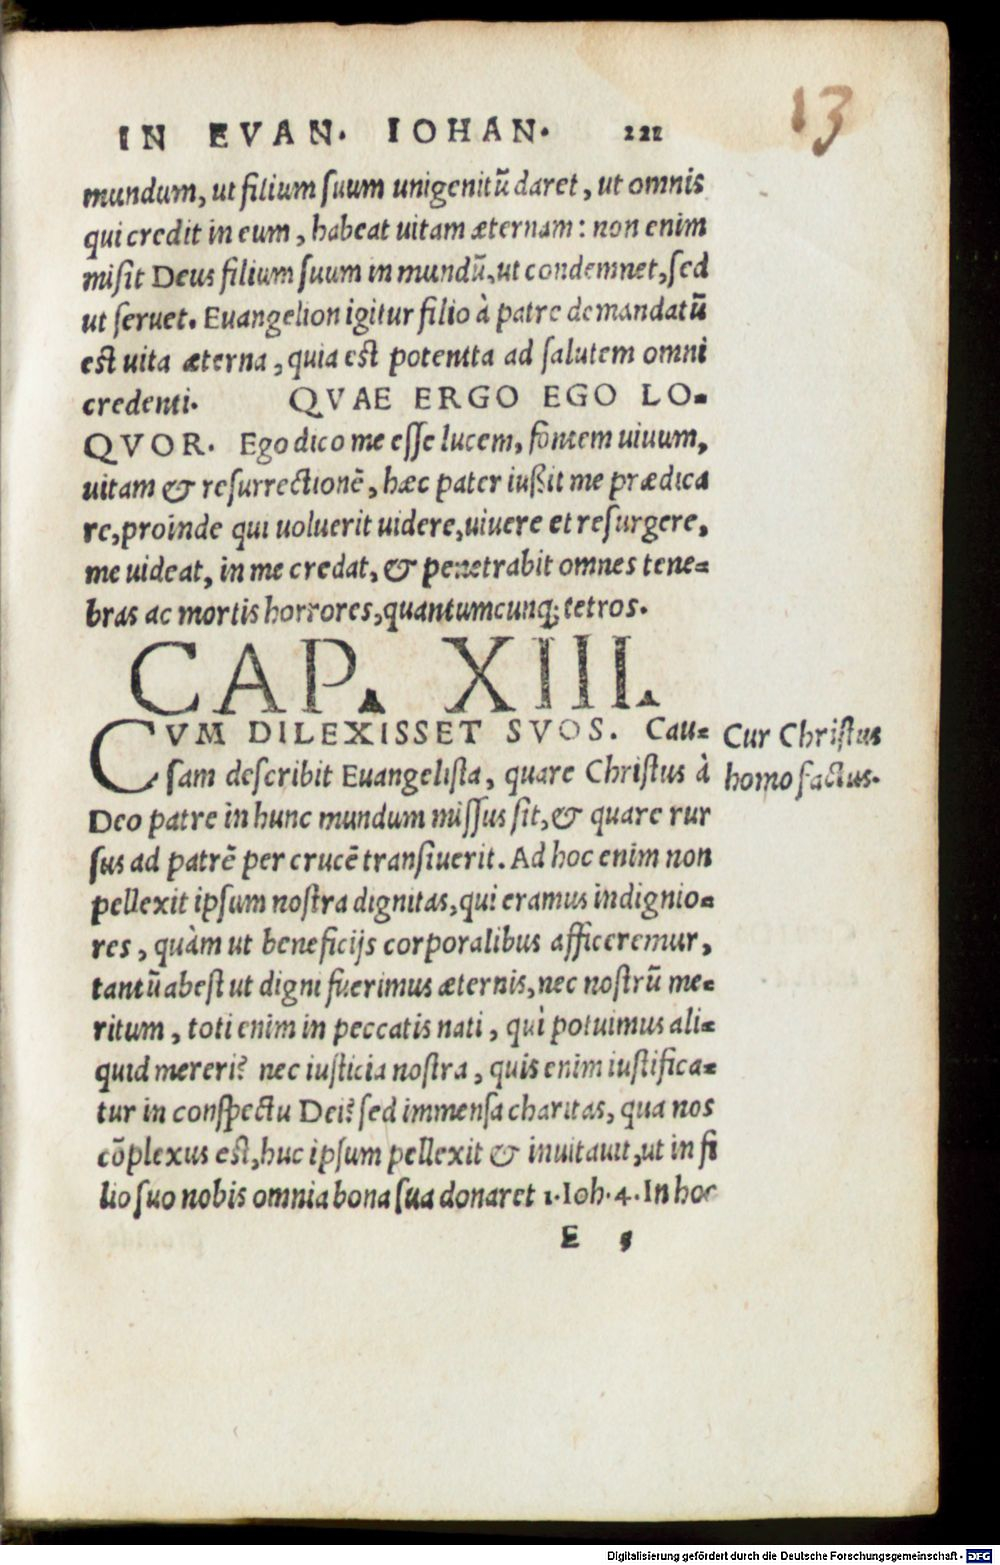 13
IN EVAN. IOHAN. 221
mundum, ut filium suum unigenitū daret, ut omnis
qui credit in eum, habeat uitam æternam: non enim
misit Deus filium suum in mundū, ut condemnet, sed
ut seruet. Euangelion igitur filio à patre demandatū
est uita æterna, quia est potentia ad salutem omni
credenti. QVAE ERGO EGO LO-
QVOR. Ego dico me esse lucem, fontem uiuum,
uitam & resurrectionē, hæc pater iußit me prædica
re, proinde qui uoluerit uidere, uiuere et resurgere,
me uideat, in me credat, & penetrabit omnes tene-
bras ac mortis horrores, quantumcunq; tetros.
CAP. XIII.
CVM DILEXISSET SVOS. Cau-
sam describit Euangelista, quare Christus à
Deo patre in hunc mundum missus sit, & quare rur
sus ad patrē per crucē transiuerit. Ad hoc enim non
pellexit ipsum nostra dignitas, qui eramus indignio-
res, quàm ut beneficijs corporalibus afficeremur,
tantū abest ut digni fuerimus æternis, nec nostrū me-
ritum, toti enim in peccatis nati, quì potuimus ali-
quid mereri? nec iusticia nostra, quis enim iustifica-
tur in conspectu Dei? sed immensa charitas, qua nos
cōplexus est, huc ipsum pellexit & inuitauit, ut in fi
lio suo nobis omnia bona sua donaret 1. Ioh. 4. In hoc
E 5
Cur Christus
homo factus.
Digitalisierung gefördert durch die Deutsche Forschungsgemeinschaft - DFG